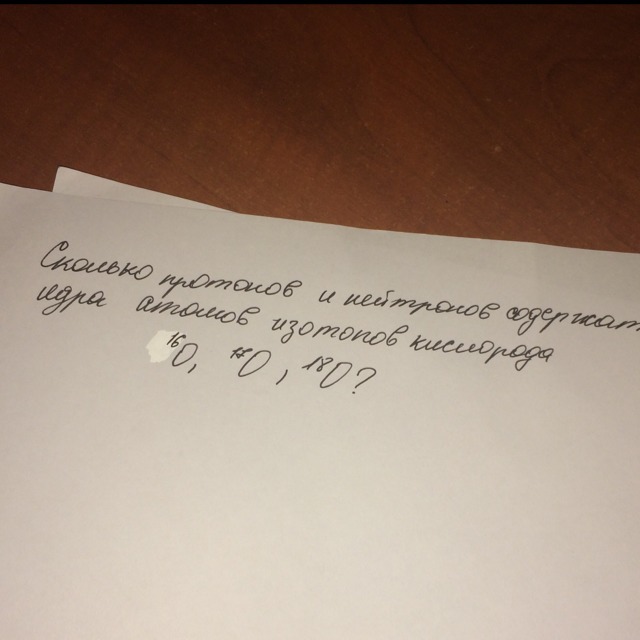 Сколько протонов и нейтронов содержат
ядра атомов изотопов кислорода
¹⁶O, ¹⁷O, ¹⁸O?